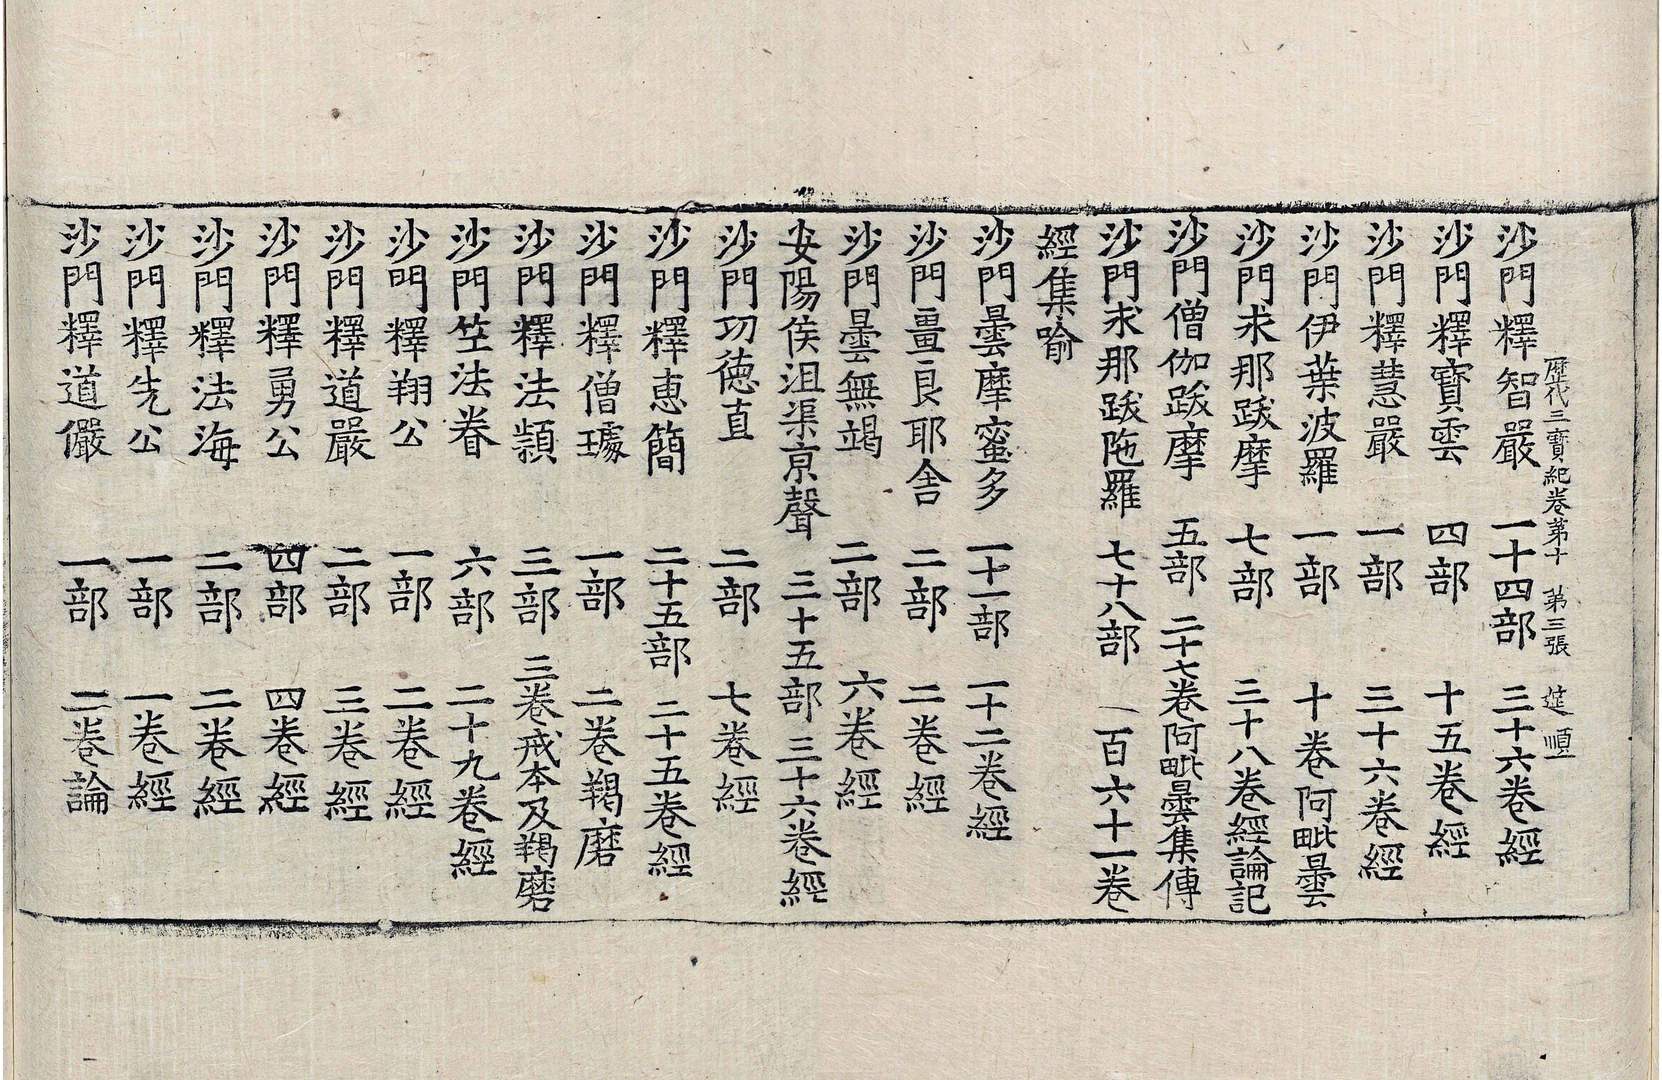 歷代三寶紀卷第十 第三張 莚順
沙門釋智嚴 一十四部 三十六卷經
沙門釋寶雲 四部 十五卷經
沙門釋慧嚴 一部 三十六卷經
沙門伊葉波羅 一部 十卷阿毗曇
沙門求那跋摩 七部 三十八卷經論記
沙門僧伽跋摩 五部 二十七卷阿毗曇集傳
沙門求那跋陁羅 七十八部 一百六十一卷
經集喻
沙門曇摩蜜多 一十一部 一十二卷經
沙門畺良耶舍 二部 二卷經
沙門曇無竭 二部 六卷經
安陽侯沮渠京聲 三十五部 三十六卷經
沙門功德直 二部 七卷經
沙門釋恵簡 二十五部 二十五卷經
沙門釋僧璩 一部 二卷羯磨
沙門釋法頴 三部 三卷戒本及羯磨
沙門竺法眷 六部 二十九卷經
沙門釋翔公 一部 二卷經
沙門釋道嚴 二部 三卷經
沙門釋勇公 四部 四卷經
沙門釋法海 二部 二卷經
沙門釋先公 一部 一卷經
沙門釋道儼 一部 二卷論